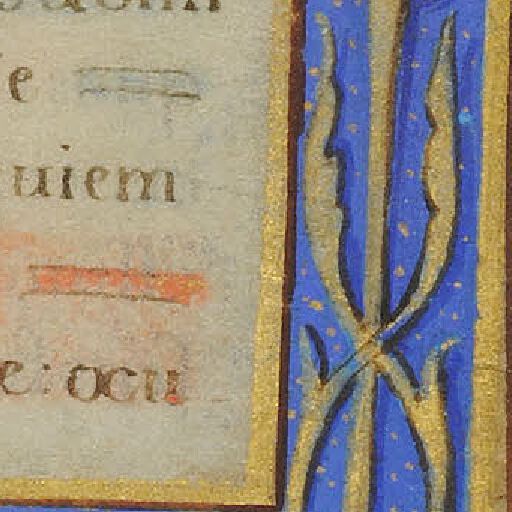 e
uiem
e: ocu